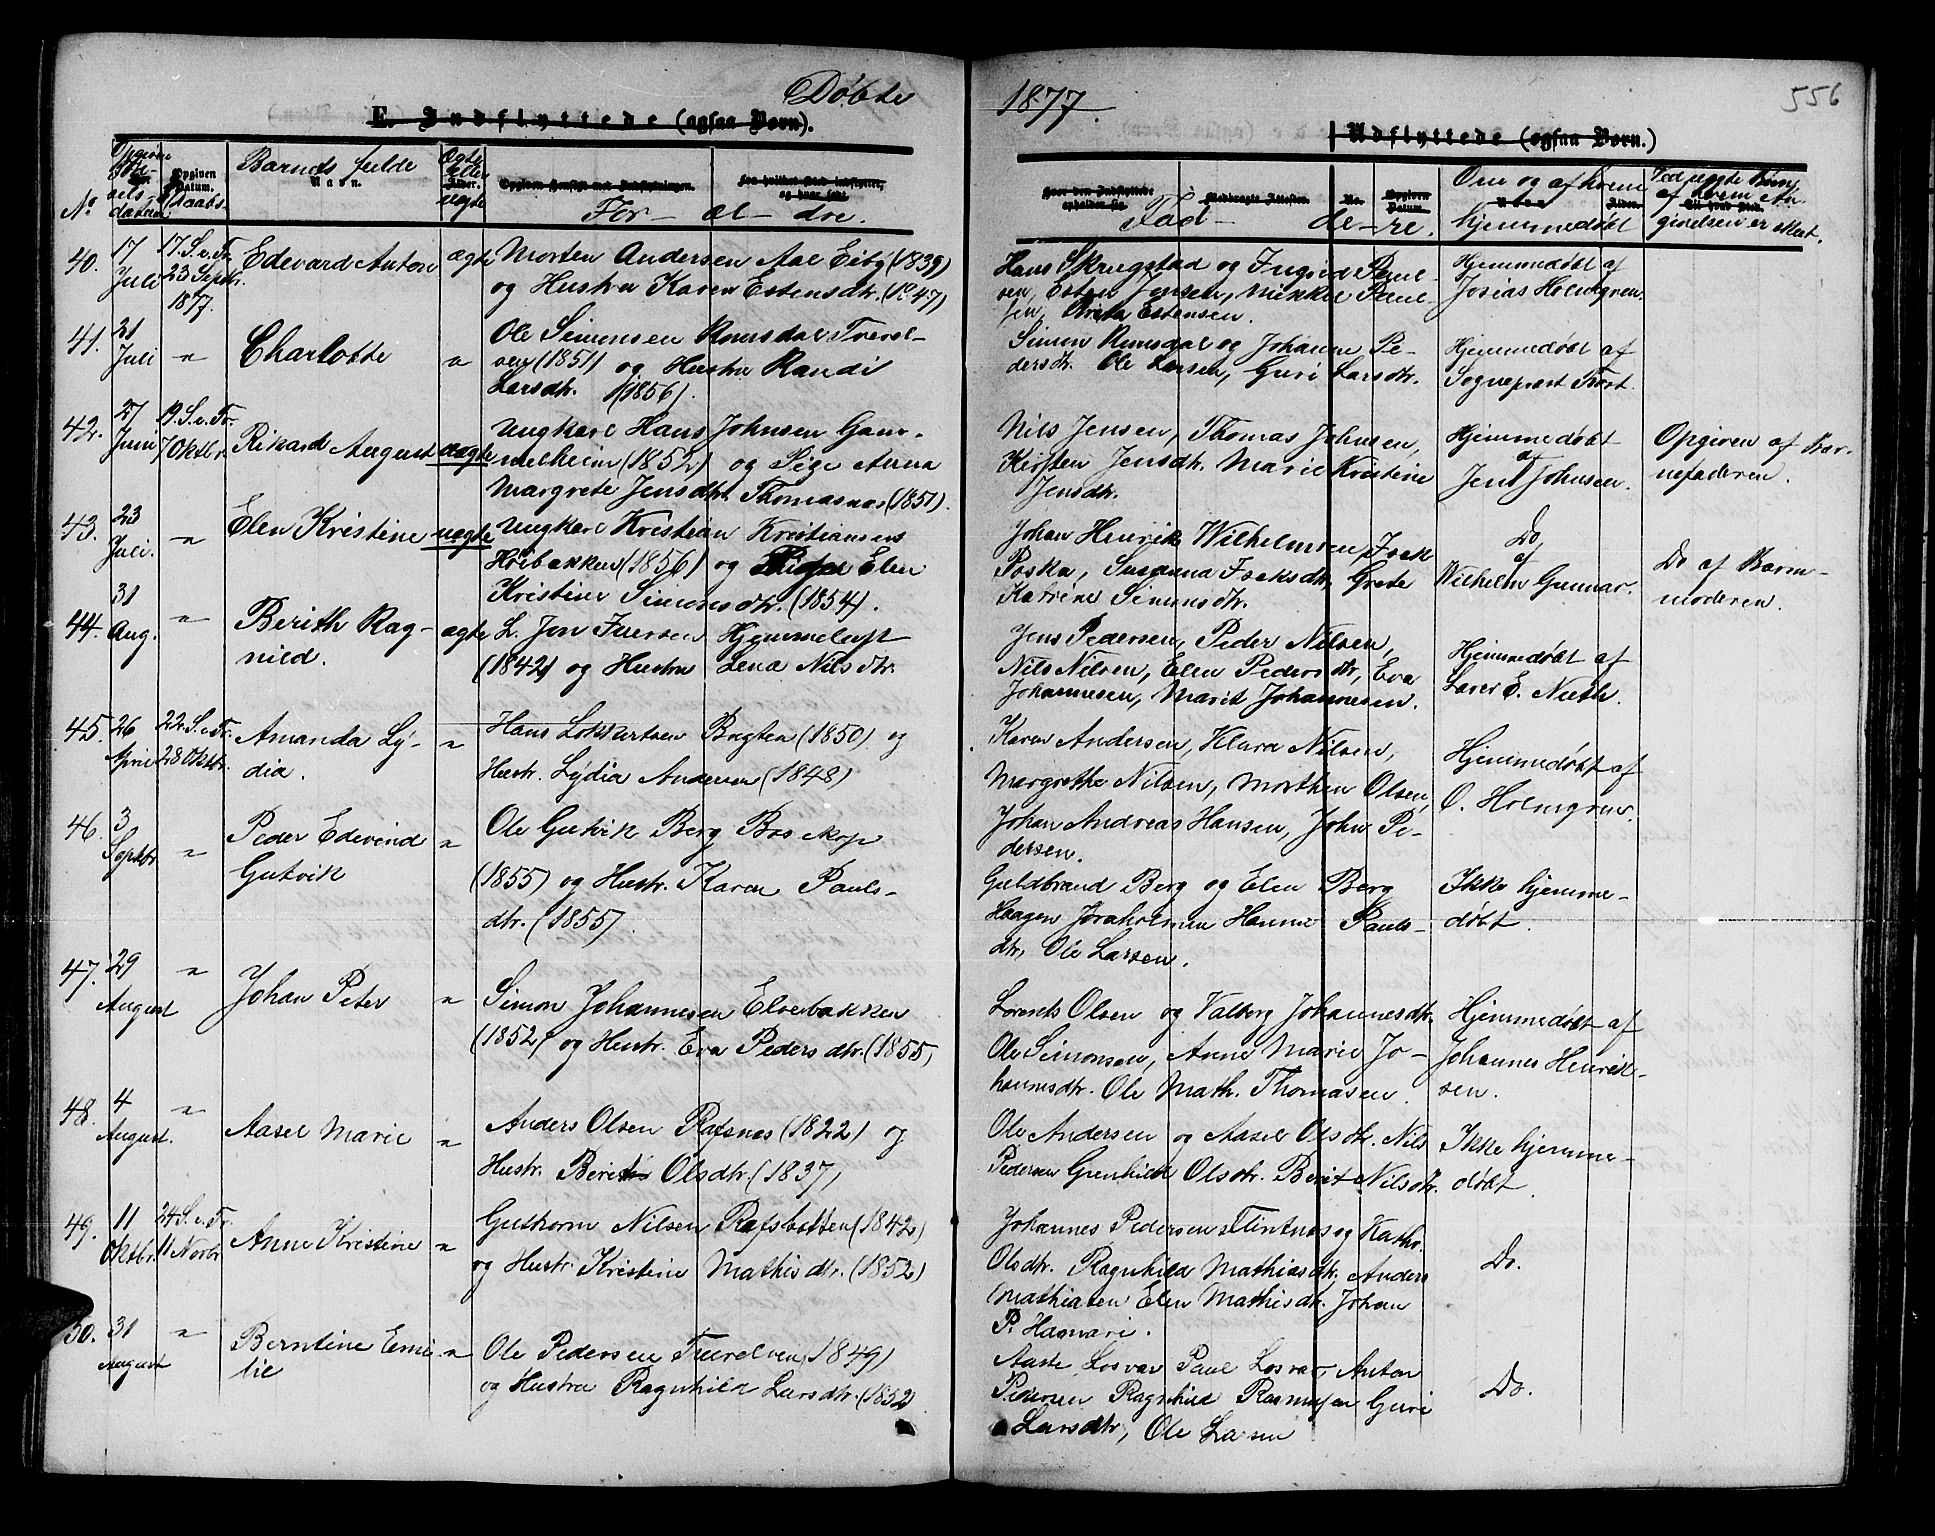 Döbte
1877.
556
E. Indflyttede (ogsaa Børn).
Udflyttede (ogsaa Børn.)
No
Födselsdatum
Opgiven Datum.
Daabs-
Barnets fulde
Navn.
Ægte eller uegte
Alder.
Opgiven Hensigt med Indflytningen.
fra hvilket Sted indflyttet,
og hvor født.
For-  æl-  dre.
hvor den Indflyttede opholder sig.
Medbragte Attester.
No.
Opgiven Datum.
Fad-  de-  re.
Om og af hvem
Navn
Alder.
hjemmedöbt
Ved uegte Börn,
af hvem An
Til hvad Sted.
givelsen er skeet.
40.
17 Juli
17. S. e. Tr.
23 Septr.
1877.
Edevard Anton
ægte
Morten Andersen Aal Eiby (1839)
og Hustru Karen Estensdtr. (1847)
Hans Skrugstad og Ingrid Paul-
sen, Esten Jensen, Mikkel Paul-
sen, Brita Estensen.
Hjemmedöbt af
Josias Holmgren.
41.
21 Juli
"
Charlotte
"
Ole Simonsen Romsdal Tverel-
ven (1851) og Hustru Randi
Larsdtr. (1856).
Simon Romsdal og Johanne Pe-
dersdtr. Ole Larsen, Guri Larsdtr.
Hjemmedöbt af
Sogneprest
42.
27 Juni
19. S. e. Tr.
7 Oktbr.
Rikard August
uægte
Ungkarl Hans Johnsen Gam-
melheim (1852) og Pige Anna
Margrete Jensdtr. Thomasnæs (1851).
Nils Jensen, Thomas Johnsen,
Kirsten Jensdtr. Marie Kristine
Jensdtr.
Hjemmedöbt
af
Jens Johnsen.
Opgiven af Bar-
nefaderen.
43.
23 Juli.
"
Elen Kristine
uegte
Ungkarl Kristian Kristiansen
Höibakken (1856) og Pige Elen
Kristine Simonsdtr. (1854).
Johan Henrik Wilhelmsen, Isak
Poska, Susanna Isaksdtr, Grete
Katrine Simonsdtr.
Do
af
Wilhelm Gunnar.
Do af Barn-
moderen.
44.
31 Aug.
"
Berith Rag-
nild.
ægte
L. Jon Iversen Hjemmeluft
(1842) og Hustru Lena Nilsdtr.
Jens Pedersen, Peder Nilsen,
Nils Nilsen, Elen Pedersdtr, Eva
Johannesen, Marit Johannesen.
Hjemmedöbt af
Lærer E.
45.
26 April
22. S. e. Tr.
28 Oktbr.
Amanda Ly-
dia.
"
Hans Lokkertsen Bugten (1850) og
Hustr. Lydia Andersen (1848)
Karen Andersen, Klara Nilsen,
Margrethe Nilsen, Morthen Olsen,
Johan Andreas Hansen, John Pe-
dersen.
Hjemmedöbt af
O. Holmgren.
46.
3 Septbr
"
Peder Edevind
Gutvik
"
Ole Gutvik Berg Bossekop
(1855) og Hustr. Karen Pauls-
dtr. (1855).
Guldbrand Berg og Elen Berg
Haagen Hanna Pauls-
dtr, Ole Larsen.
Ikke hjemme-
döbt.
47.
29 August
"
Johan Peter
"
Simon Johannesen Elvebakken
(1852) og Hustr. Eva Pedersdtr. (1855)
Lorents Olsen og Valborg Johannesdtr.
Ole Simonsen, Anne Marie Jo-
hannesdtr. Ole Math. Thomasen.
Hjemmedöbt af
Johannes Henrik-
sen.
48.
4 August.
"
Aasel Marie
"
Anders Olsen Rafsnes (1822) og
Hustr. Berit Olsdtr. (1837)
Ole Andersen og Aasel Olsdtr. Nils
Pedersen Gunhild Olsdtr. Berit Nilsdtr.
Ikke hjemme-
döbt.
49.
11 Oktbr.
24. S. e. Tr.
11 Novbr
Anne Kristine
"
Guthorm Nilsen Rafsbotten (1842)
og Hustr. Kristine Mathisdtr. (1852)
Johannes Pedersen Flintnæs og Kathr.
Olsdtr. Ragnhild Mathiasdtr, Anders
Mathiasen Elen Mathisdtr. Johan
P. Hannari.
Do.
50.
31 August
"
Berntine Emi
lie
"
Ole Pedersen Tverelven (1849)
og Hustru Ragnhild Larsdtr. (1852)
Aaste Losvar Paul Losvar, Anton
Pedersen Ragnhild Rasmussen Guri
Larsdtr, Ole Larsen
Do.